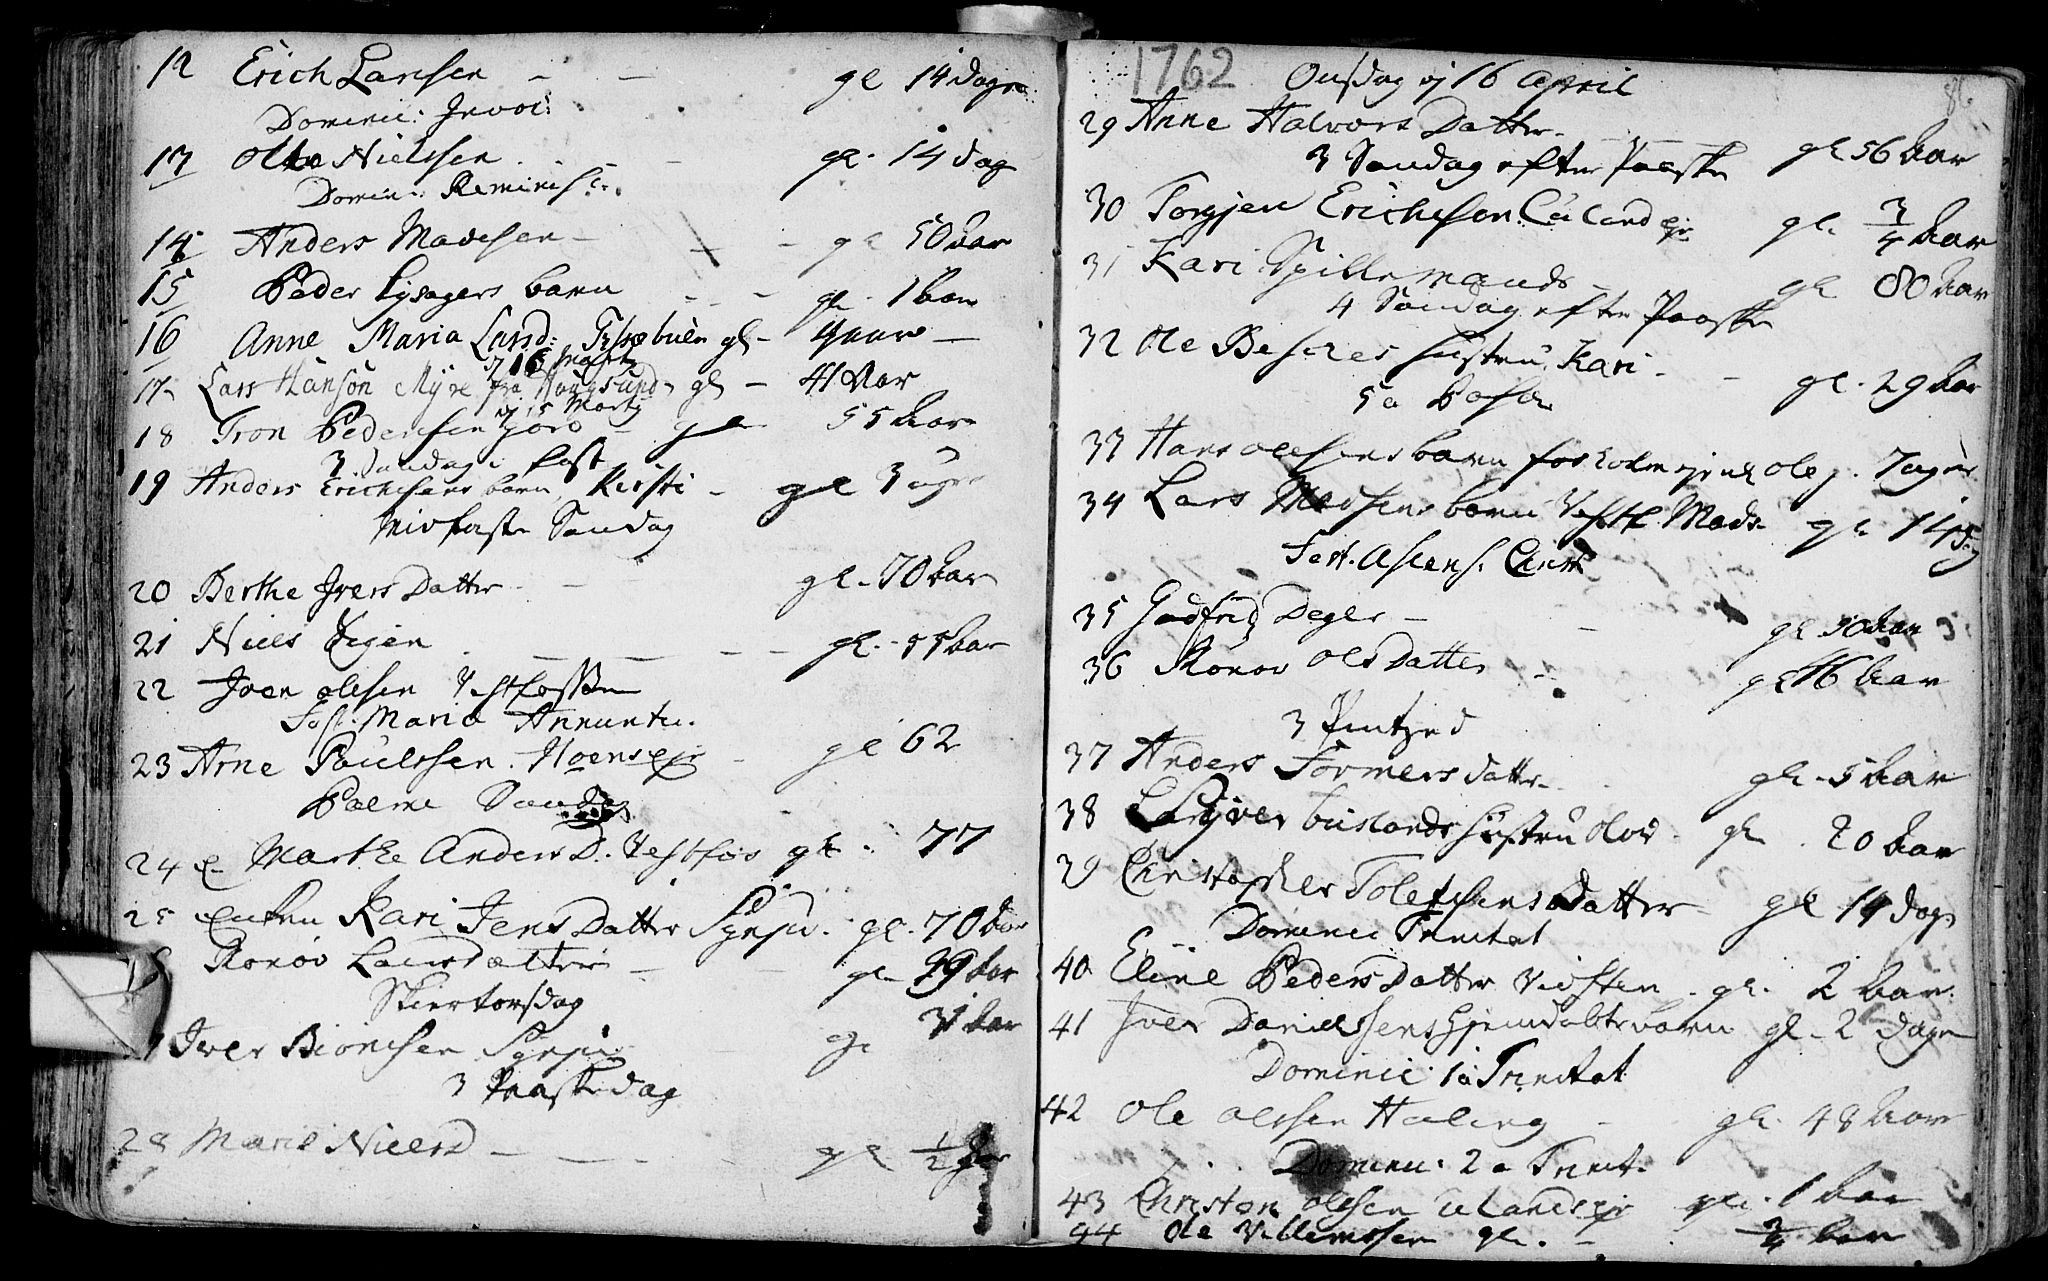 12 Erich Larsen - - gl 14 dage
Dominic: Invoc:
13 Ole Nielssen - - gl. 14 dag
Domin: Reminisc:
14 Anders Madssen - - gl 50 Aar
15 Peder Lysagers barn - - - gl. 1 Aar
16 Anne Maria Larsd: gl - 4 aar -
d 16 Marty
17 Lars Hanson Myre fra Hougsund gl - 41 Aar
d 15 Marty
18 Tron Pedersen - gl 55 Aar
3 Søndag i fast
19 Anders Erichsens barn Kirsti - gl 3 uger
Midfaste Søndag
20 Berthe Ivers Datter - - - gl. 70 Aar
21 Niels - - - - gl. 55 Aar
22 Iver olesen Vestfossen
Fest. Maria Annunti.
23 Arne Poulssen Hoens eje - gl 62
Palme Søndag
24 Marthe Anders D. Vestfos gl. 77
25 Enken Kari Jens Datter gl. 70 Aar
Ronøv Larsdatter - gl 29 Aar
Skiertorsdag
Iver Biørnsen gl 31 Aar
3 Paaske dag
28 Marie Nielsd - - - - gl 1/2 Aar
1762 Onsdag d 16 April
29 Anne Halvors Datter - - gl 56 Aar
3 Søndag efter Paaske
30 Torgjer Erichsen eje gl. 3/4 Aar
31 Kari Spillemands - gl 80 Aar
4 Søndag efter Paaske
32 Ole hustru Kari - - gl. 29 Aar
5 a Paske
33 Hans olesens barn ole 7 uger
34 Lars Madsens barn Mads gl. 14 dag
Fest. Ascens. Christi
35 Gudfrid Degler - - gl 30 Aar
36 Ronov Ols Datter - gl 16 Aar
3 Pintzed
37 Anders Formers datter - gl. 5 Aar
38 hustru Olov gl. 20 Aar
39 Christopher Tolefsens Datter gl 14 dage
Dominic Trinitat
40 Eline Peders Datter - gl. 2 Aar
41 Iver Danielssens barn gl. 2 dage
Dominic: 1 a Trinitat
42 Ole olssen Haling - gl. 48 Aar
Dominic. 2 a Trinit.
43 Christen olssen eje gl. 1 Aar
44 Ole Villemssen gl. - 3/4 Aar